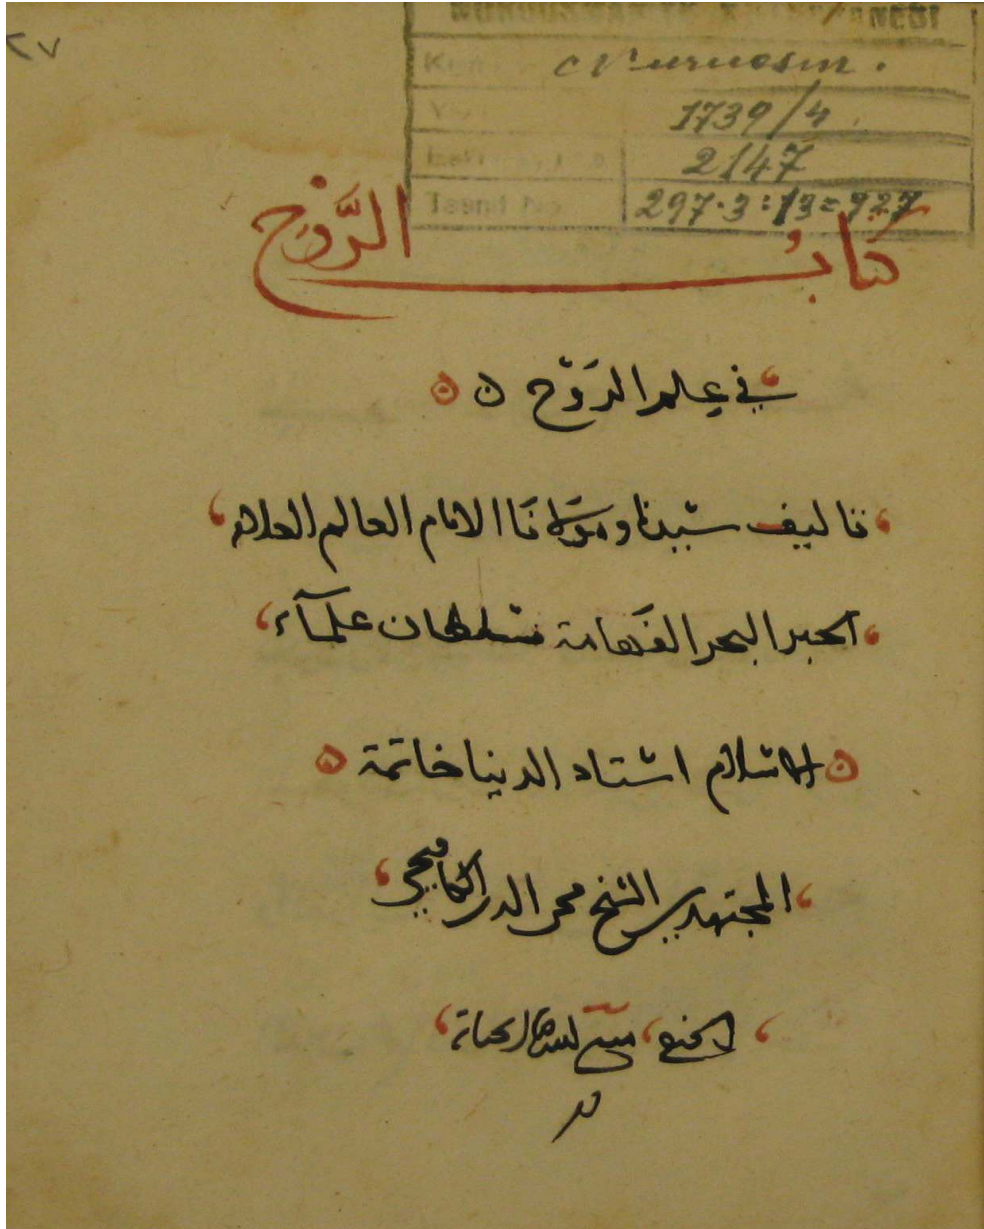 ٢٧
Nuruosm.
1739/4
2147
Tasnif No. 297.3:13=927
كتاب الرَّوْح
في علم الرَوْح ه ه
تاليف سيدنا ومولانا الامام العالم العلامة
الحبر البحر الفهامة سلطان علمآء
الاسلام استاد الدنيا خاتمة
المجتهدين الشيخ محي الدين الكافيجي
الحنفي